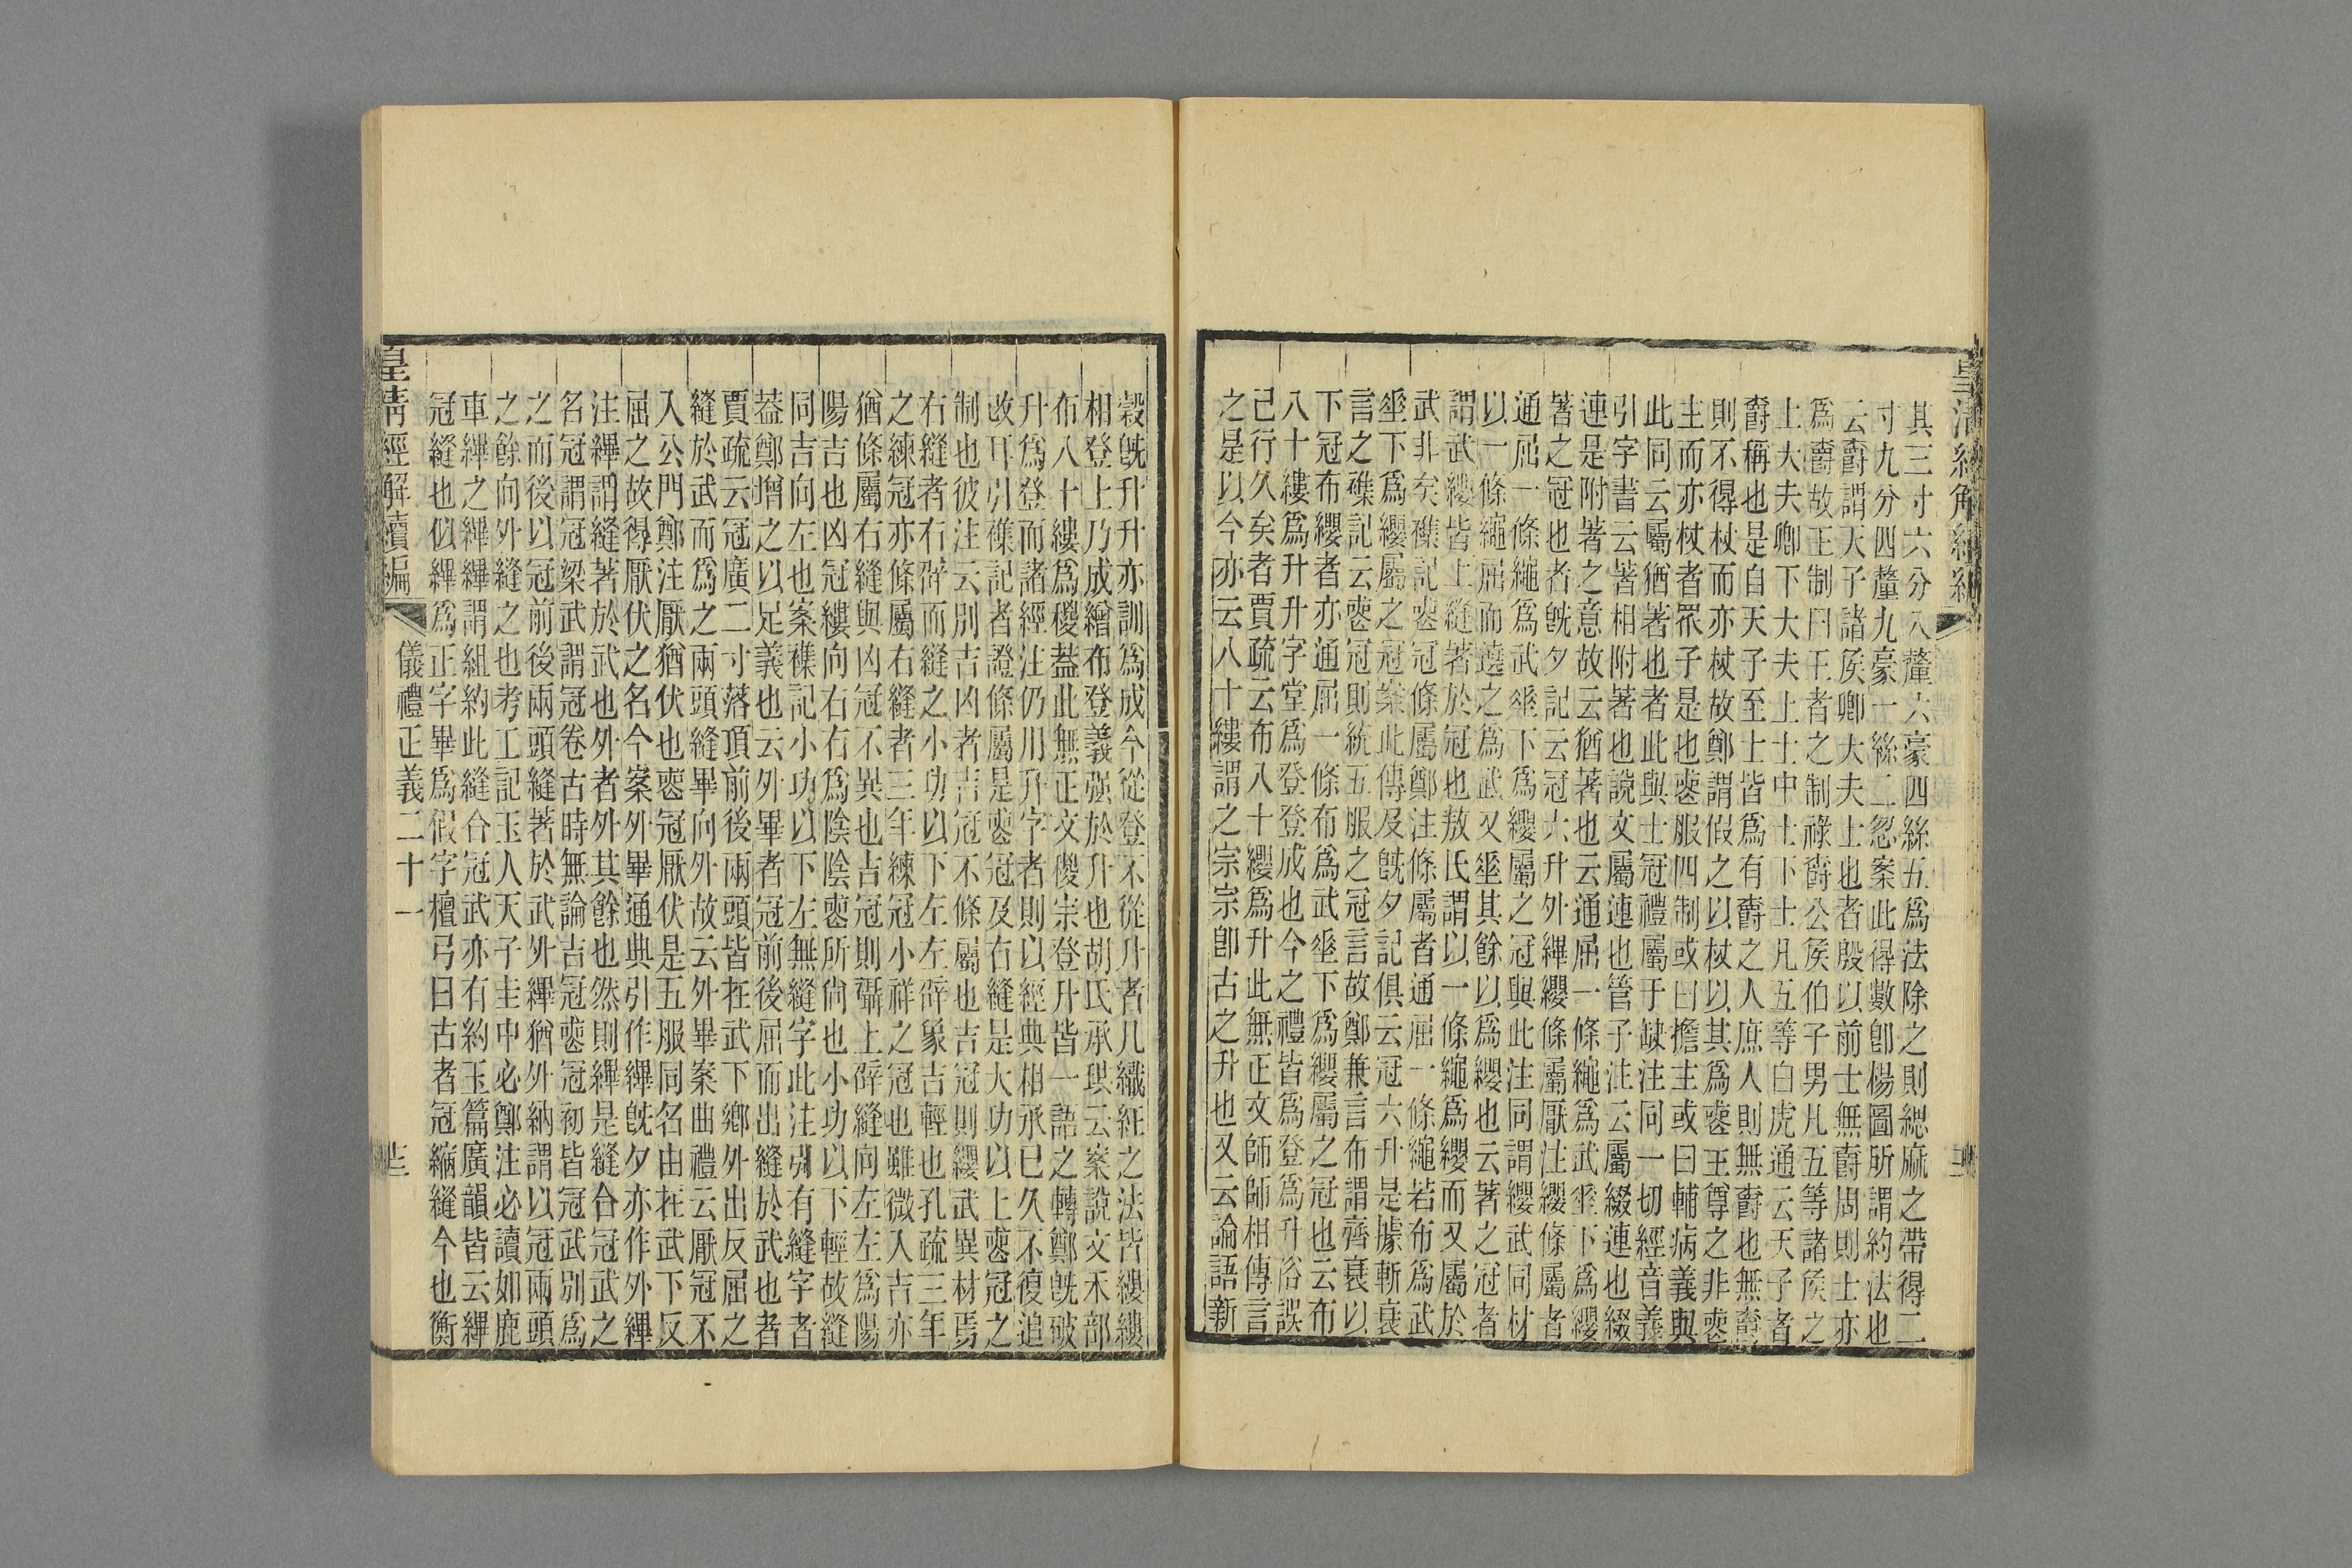 其三寸六分八釐六豪四絲五爲法除之則緦麻之帶得二
寸九分四釐九豪一絲二忽案此得數卽楊圖所謂約法也
云爵謂天子諸侯卿大夫士也者殷以前士無爵周則士亦
爲爵故王制曰王者之制祿爵公侯伯子男凡五等諸侯之
上大夫卿下大夫上士中士下士凡五等白虎通云天子者
爵稱也是自天子至士皆爲有爵之人庶人則無爵也無爵
則不得杖而亦杖故鄭謂假之以杖以其爲喪主尊之非喪
主而亦杖者衆子是也喪服四制或曰擔主或曰輔病義與
此同云屬猶著也者此與士冠禮屬于缺注同一切經音義
引字書云著相附著也說文屬連也管子注云屬綴連也綴
連是附著之意故云猶著也云通屈一條繩爲武垂下爲纓
著之冠也者旣夕記云冠六升外縪纓條屬厭注纓條屬者
通屈一條繩爲武垂下爲纓屬之冠與此注同謂纓武同材
以一條繩屈而遶之爲武又垂其餘以爲纓也云著之冠者
謂武纓皆上縫著於冠也敖氏謂以一條繩爲纓而又屬於
武非矣襍記喪冠條屬鄭注條屬者通屈一條繩若布爲武
垂下爲纓屬之冠案此傳及旣夕記俱云冠六升是據斬衰
言之襍記云喪冠則統五服之冠言故鄭兼言布謂齊衰以
下冠布纓者亦通屈一條布爲武垂下爲纓屬之冠也云布
八十縷爲升升字堂爲登登成也今之禮皆爲登爲升俗誤
已行久矣者賈疏云布八十縷爲升此無正文師師相傳言
之是以今亦云八十縷謂之宗宗卽古之升也又云論語新
穀旣升升亦訓爲成今從登不從升者凡織絍之法皆縷縷
相登上乃成繒布登義强於升也胡氏承珙云案說文禾部
布八十縷爲稯蓋此無正文稯宗登升皆一語之轉鄭旣破
升爲登而諸經注仍用升字者則以經典相承已久不復追
改耳引襍記者證條屬是喪冠及右縫是大功以上喪冠之
制也彼注云別吉凶者吉冠不條屬也吉冠則纓武異材焉
右縫者右辟而縫之小功以下左左辟象吉輕也孔疏三年
之練冠亦條屬右縫者三年練冠小祥之冠也雖微入吉亦
猶條屬右縫與凶冠不異也吉冠則㩉上辟縫向左左爲陽
陽吉也凶冠縷向右右爲陰陰喪所尙也小功以下輕故縫
同吉向左也案襍記小功以下左無縫字此注引有縫字者
蓋鄭增之以足義也云外畢者冠前後屈而出縫於武也者
賈疏云冠廣二寸落頂前後兩頭皆在武下鄉外出反屈之
縫於武而爲之兩頭縫畢向外故云外畢案曲禮云厭冠不
入公門鄭注厭猶伏也喪冠厭伏是五服同名由在武下反
屈之故得厭伏之名今案外畢通典引作縪旣夕亦作外縪
注縪謂縫著於武也外者外其餘也然則縪是縫合冠武之
名冠謂冠梁武謂冠卷古時無論吉冠喪冠初皆冠武別爲
之而後以冠前後兩頭縫著於武外縪猶外納謂以冠兩頭
之餘向外縫之也考工記玉人天子圭中必鄭注必讀如鹿
車縪之縪縪謂組約此縫合冠武亦有約玉篇廣韻皆云縪
冠縫也似縪爲正字畢爲假字檀弓曰古者冠縮縫今也衡
皇淸經解續編
儀禮正義二十一